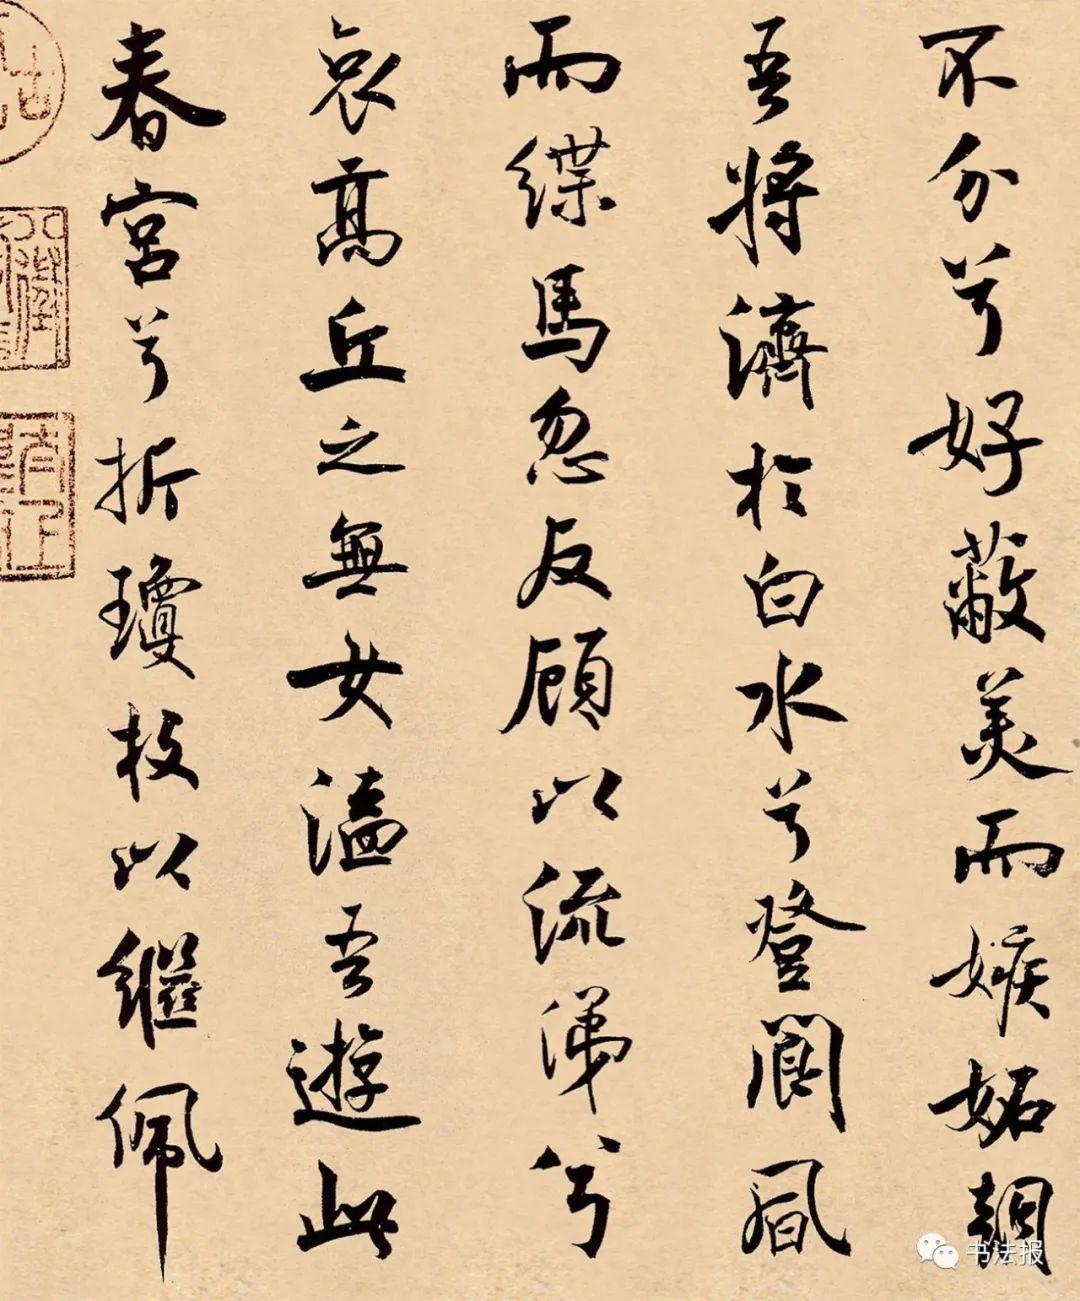 不分兮好蔽美而嫉妬朝
吾將濟於白水兮登閬風
而緤馬忽反顧以流涕兮
哀高丘之無女溘吾遊此
春宮兮折瓊枝以繼佩
书法报